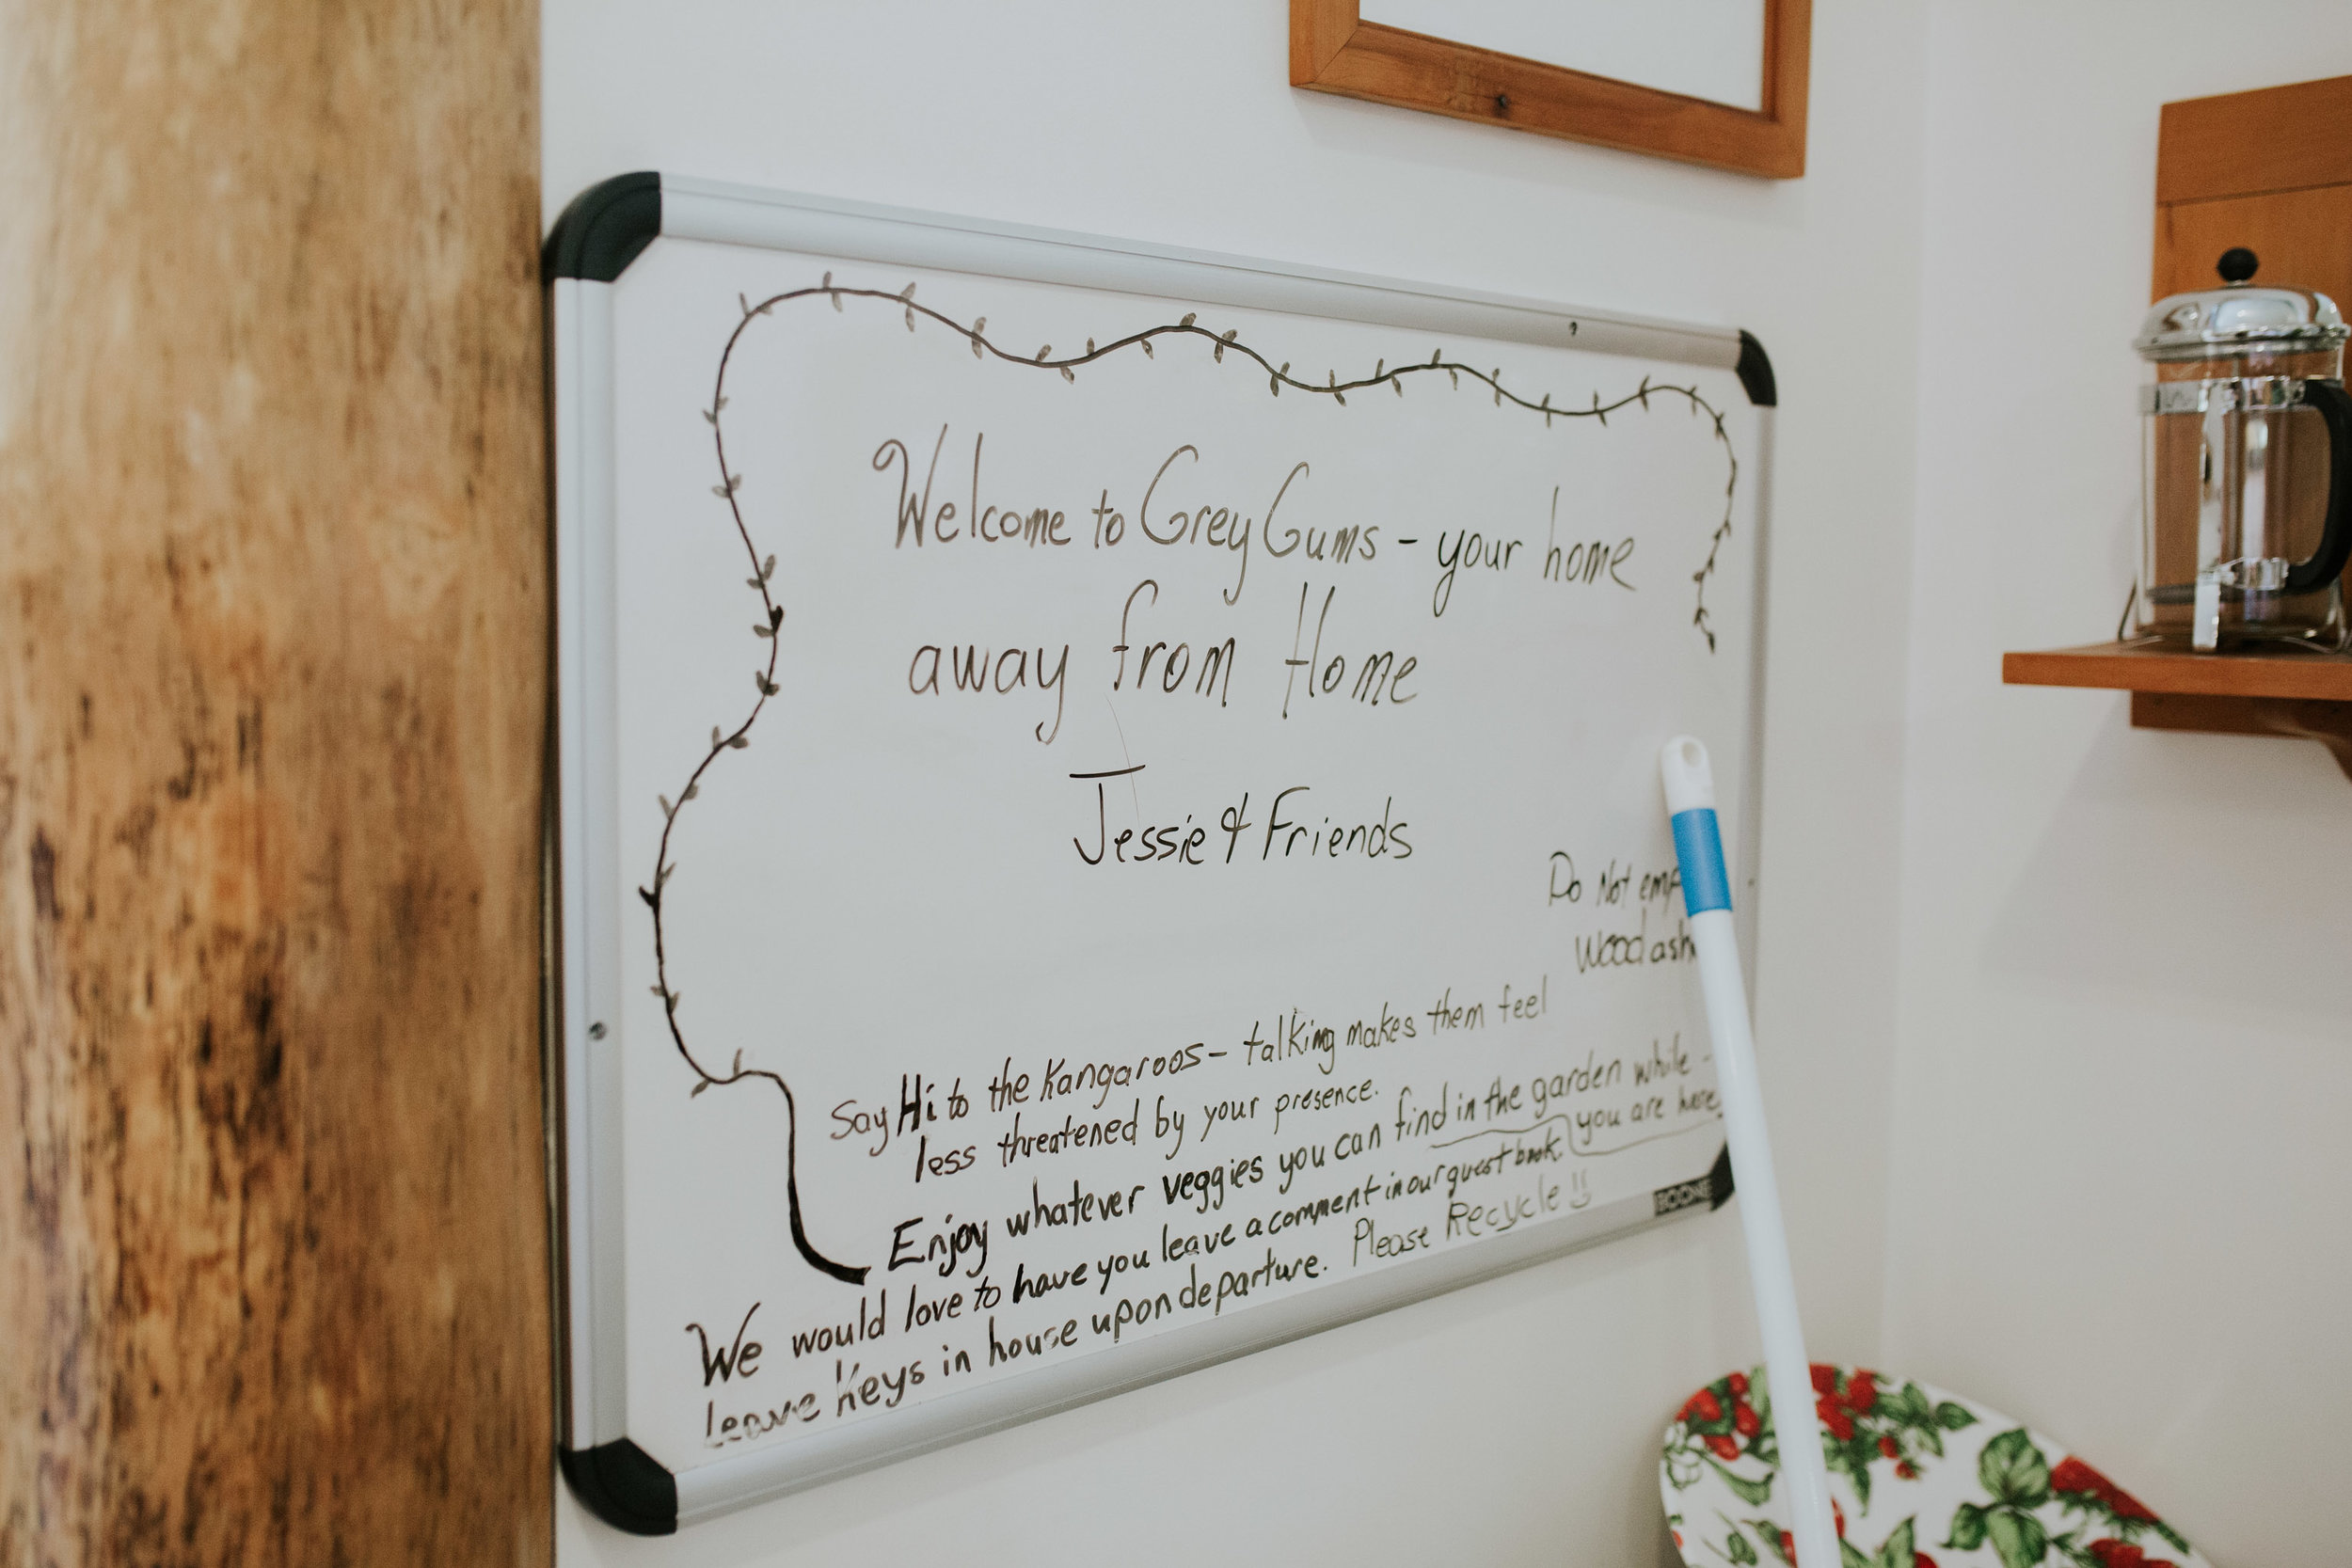 Welcome to Grey Gums - your home
away from Home
Jessie & Friends
Do Not
Wood ash
Say Hi to the Kangaroos - talking makes them feel
less threatened by your presence.
Enjoy whatever veggies you can find in the garden while -
you are here
We would love to have you leave a comment in our guest book.
Leave Keys in house upon departure. Please Recycle
BOONE